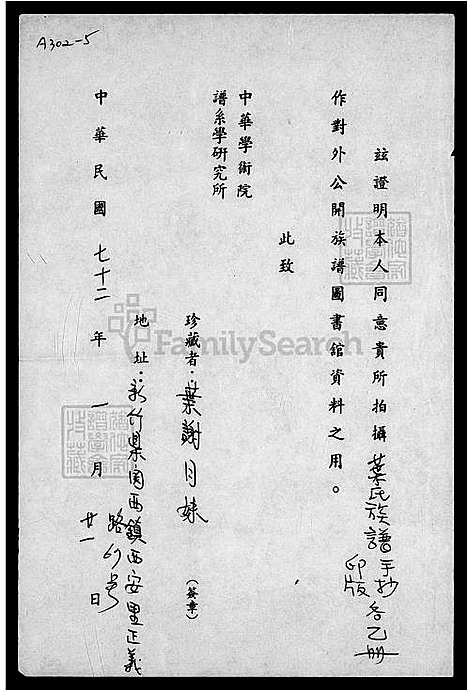 A302-5
玆證明本人同意貴所拍攝葉氏族譜手抄各乙冊
印版
作對外公開族譜圖書館資料之用。
此致
中華學術院
譜系學研究所
珍藏者：葉謝月妹（簽章）
地址：新竹縣関西鎮西安里正義
路69号
中華民國七十二年一月廿一日
FamilySearch